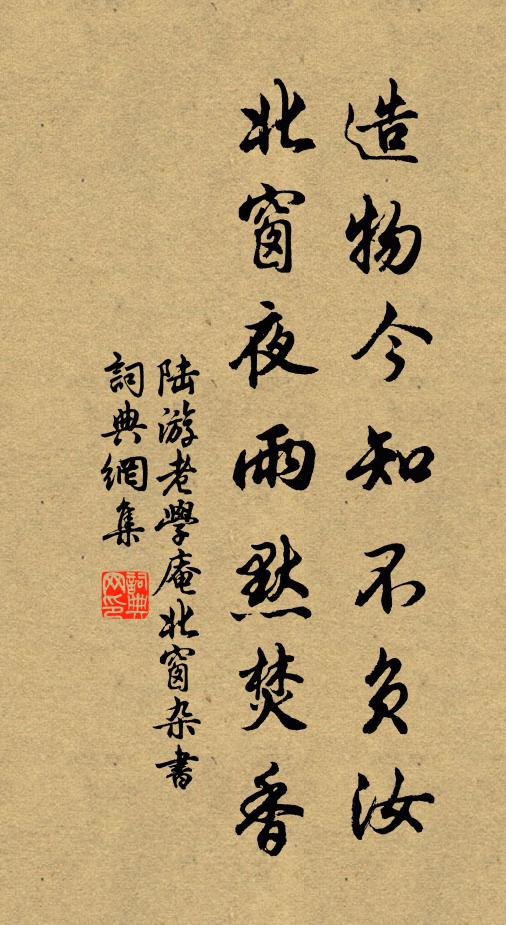 造物今知不負汝
北窗夜雨默焚香
陆游老學庵北窗杂書
詞典網集
詞典
网印